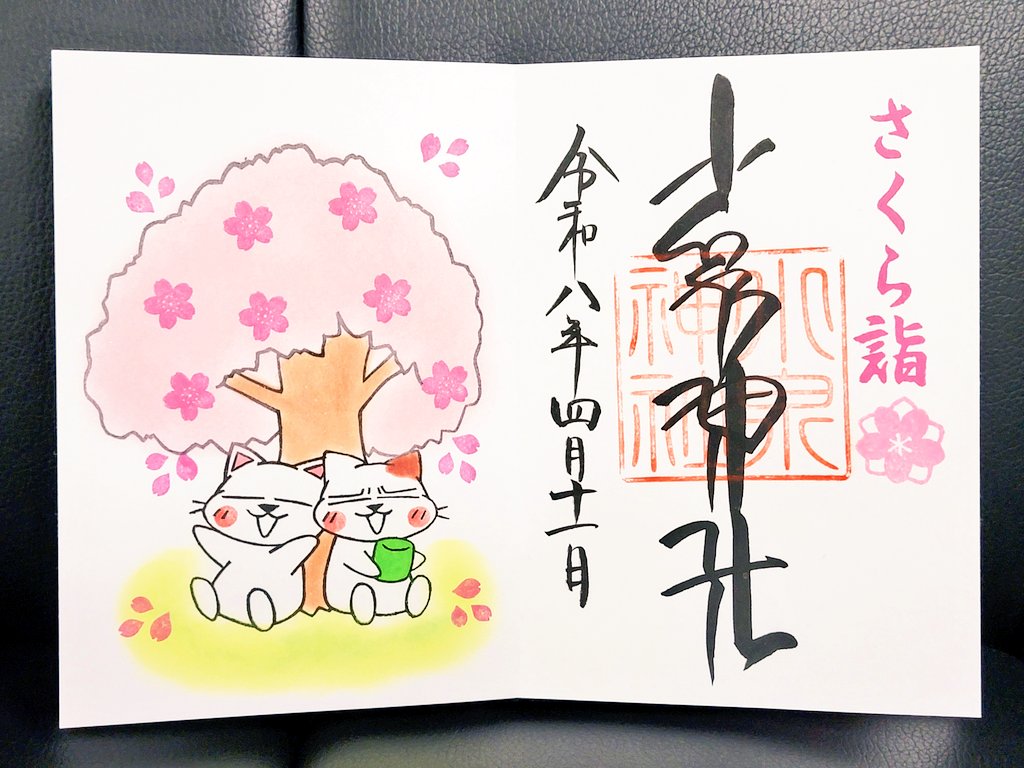 さくら詣
小泉神社
小泉神社
令和八年四月十一日